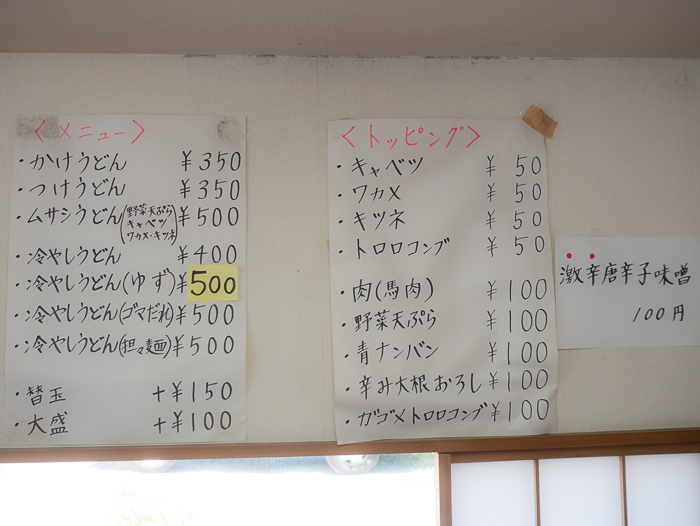 〈メニュー〉
・かけうどん ¥350
・つけうどん ¥350
・ムサシうどん(野菜天ぷら キャベツ ワカメ・キツネ) ¥500
・冷やしうどん ¥400
・冷やしうどん(ゆず) ¥500
・冷やしうどん(ゴマだれ) ¥500
・冷やしうどん(担々麺) ¥500
・替玉 +¥150
・大盛 +¥100
〈トッピング〉
・キャベツ ¥50
・ワカメ ¥50
・キツネ ¥50
・トロロコンブ ¥50
・肉(馬肉) ¥100
・野菜天ぷら ¥100
・青ナンバン ¥100
・辛み大根おろし ¥100
・ガゴメトロロコンブ ¥100
激辛唐辛子味噌
100円